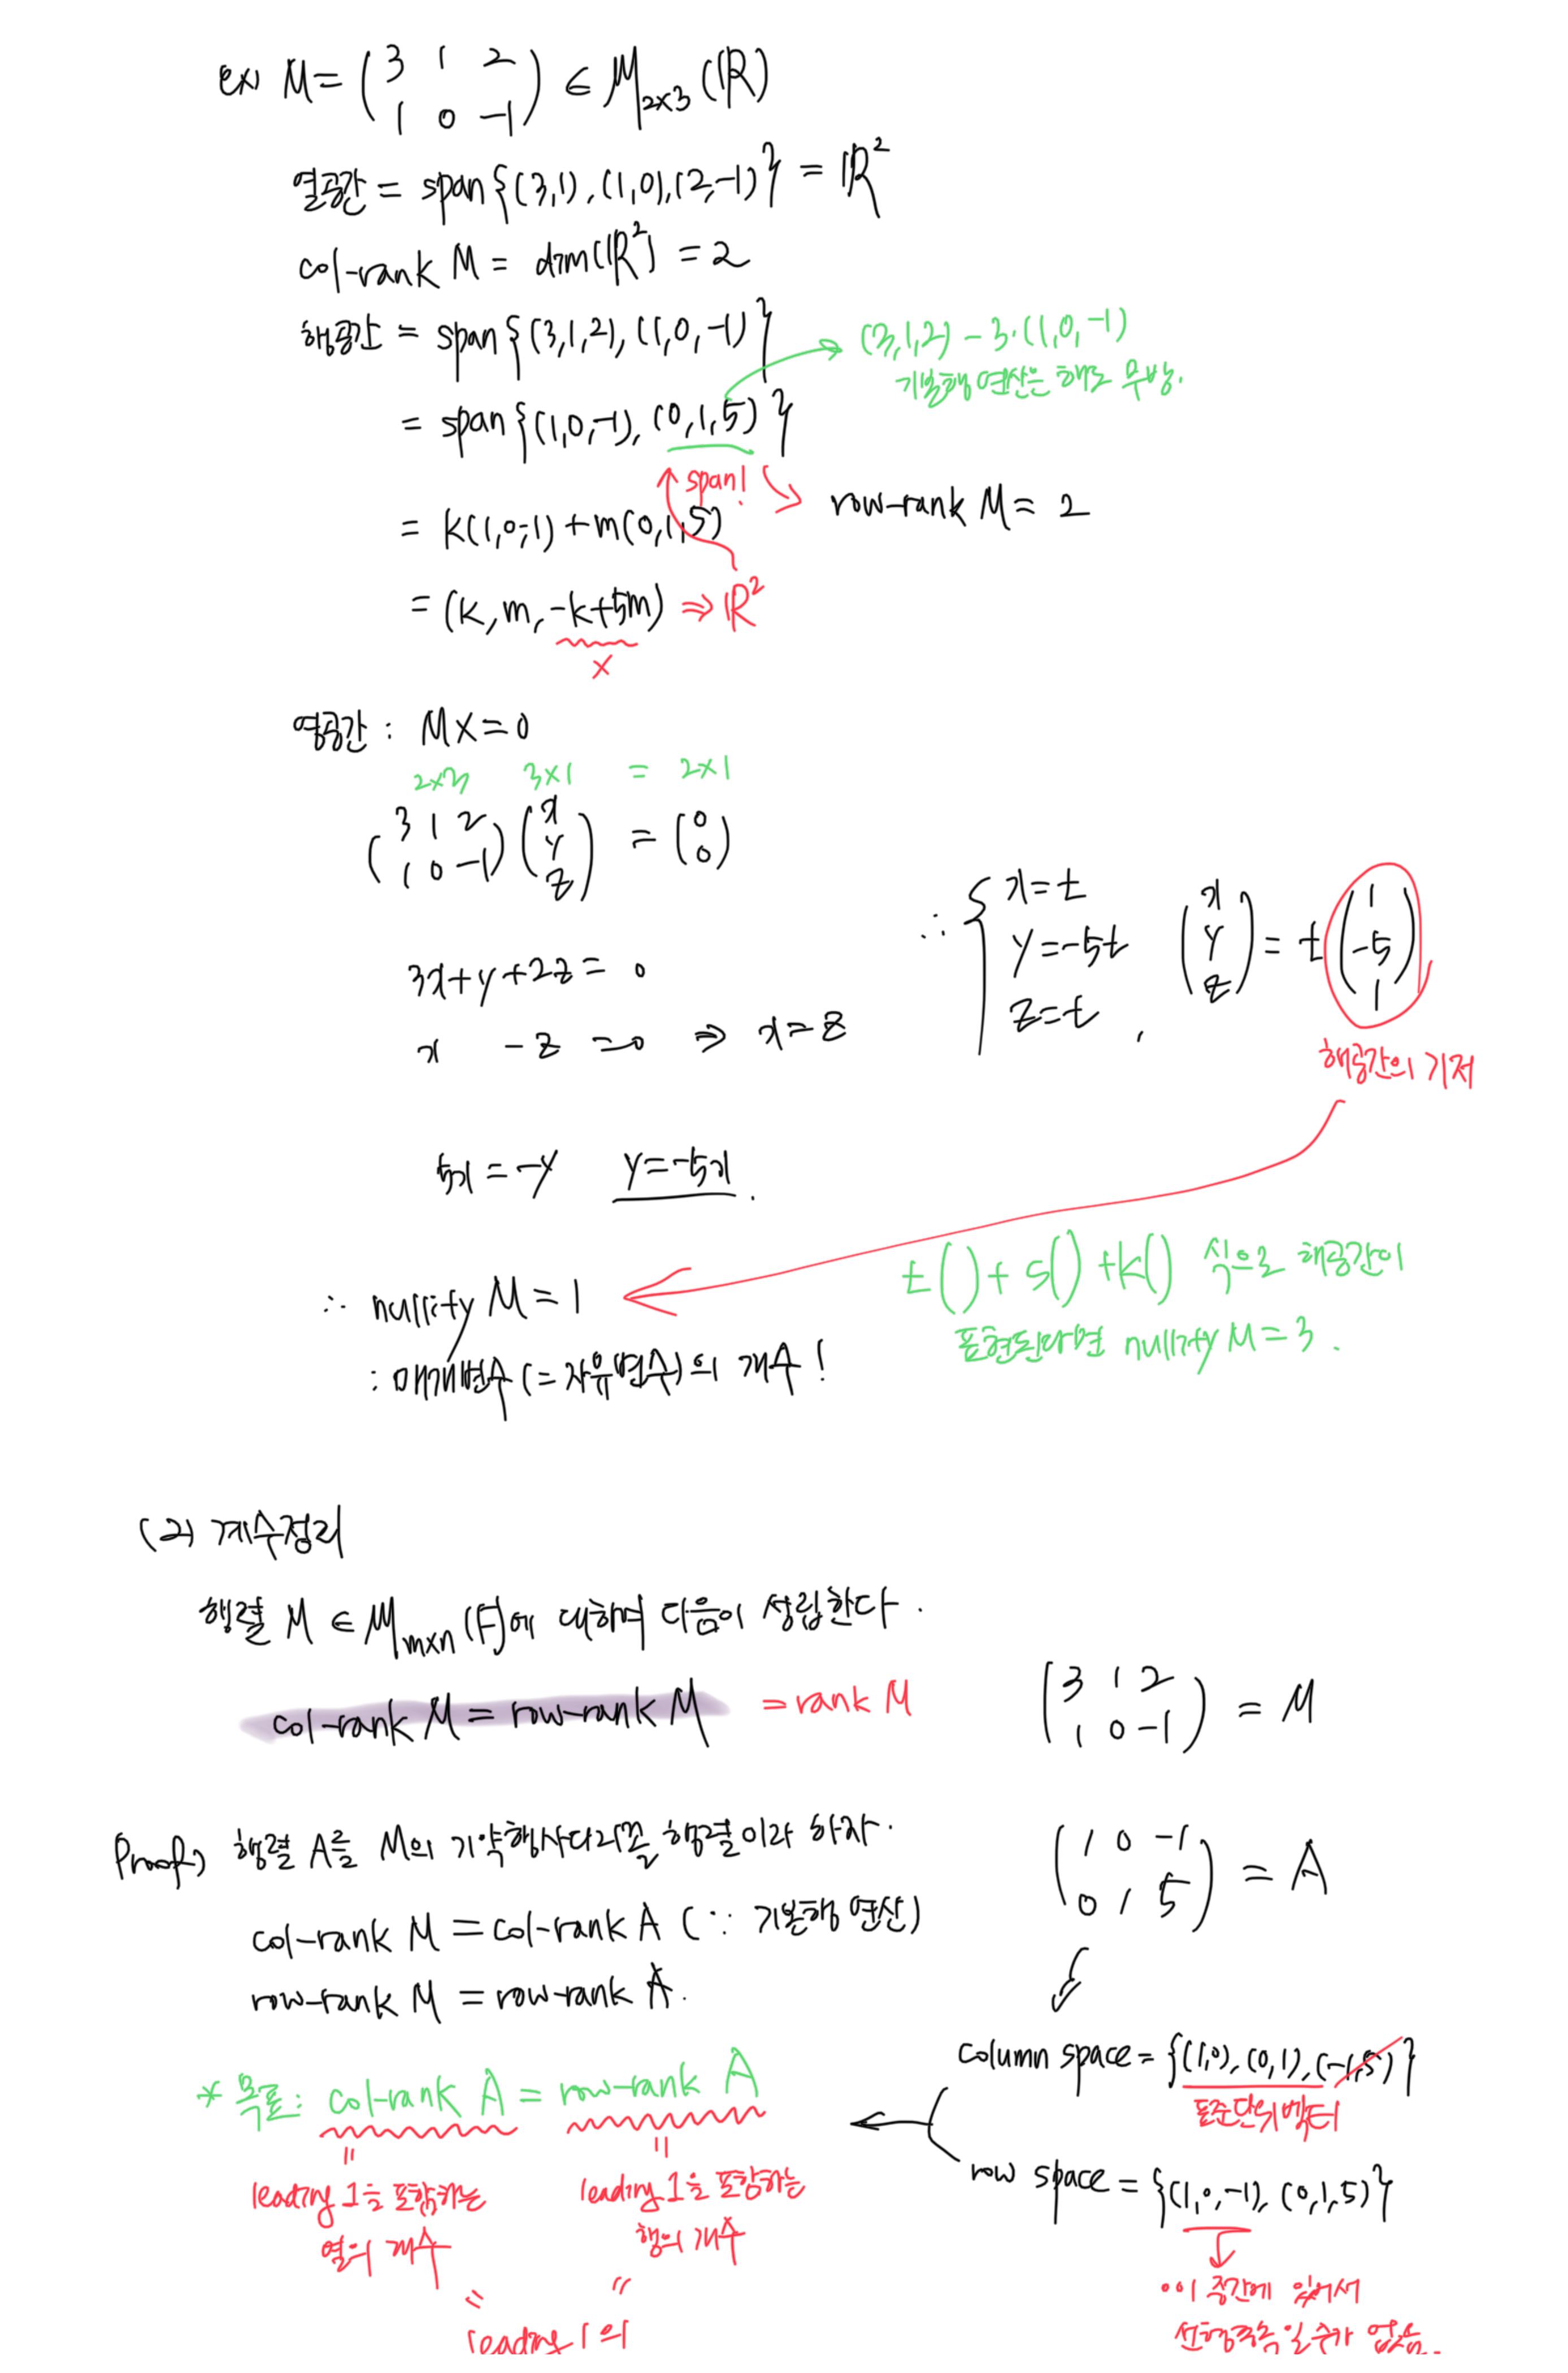 ex) M = ( 3 1 2 / 1 0 -1 ) ∈ M2×3 (ℝ)
열공간 = span{(3,1), (1,0), (2,-1)} = ℝ²
col-rank M = dim(ℝ²) = 2
해공간 = span{(3,1,2), (1,0,-1)}
(3,1,2) - 3·(1,0,-1)
기본행 연산은 해도 무방.
= span{(1,0,-1), (0,1,5)}
span!
row-rank M = 2
= k(1,0,-1) + m(0,1,5)
= (k, m, -k+5m) ⇒ ℝ²
×
영공간 : MX = 0
2×3 3×1 = 2×1
( 3 1 2 / 1 0 -1 ) ( x / y / z ) = ( 0 / 0 )
3x + y + 2z = 0
x - z = 0 ⇒ x = z
∴ { x = t
y = -5t
z = t ,
( x / y / z ) = t ( 1 / -5 / 1 )
해공간의 기저
5x = -y y = -5x .
∴ nullity M = 1
: 매개변수 (= 자유변수)의 개수!
t( ) + s( ) + k( ) 식으로 해공간이
표현된다면 nullity M = 3 .
(2) 계수정리
행렬 M ∈ Mm×n (F)에 대하여 다음이 성립한다 .
col-rank M = row-rank M = rank M
( 3 1 2 / 1 0 -1 ) = M
Proof) 행렬 A를 M의 기약행사다리꼴 행렬이라 하자 .
( 1 0 -1 / 0 1 5 ) = A
col-rank M = col-rank A (∵ 기본행 연산)
row-rank M = row-rank A .
* 목표 : col-rank A = row-rank A
= =
leading 1을 포함하는
열의 개수
leading 1을 포함하는
행의 개수
= =
leading 1의
column space = {(1,0), (0,1), (-1,5)}
표준단위벡터
row space = {(1,0,-1), (0,1,5)}
0이 중간에 있어서
선형종속일 수가 없음.